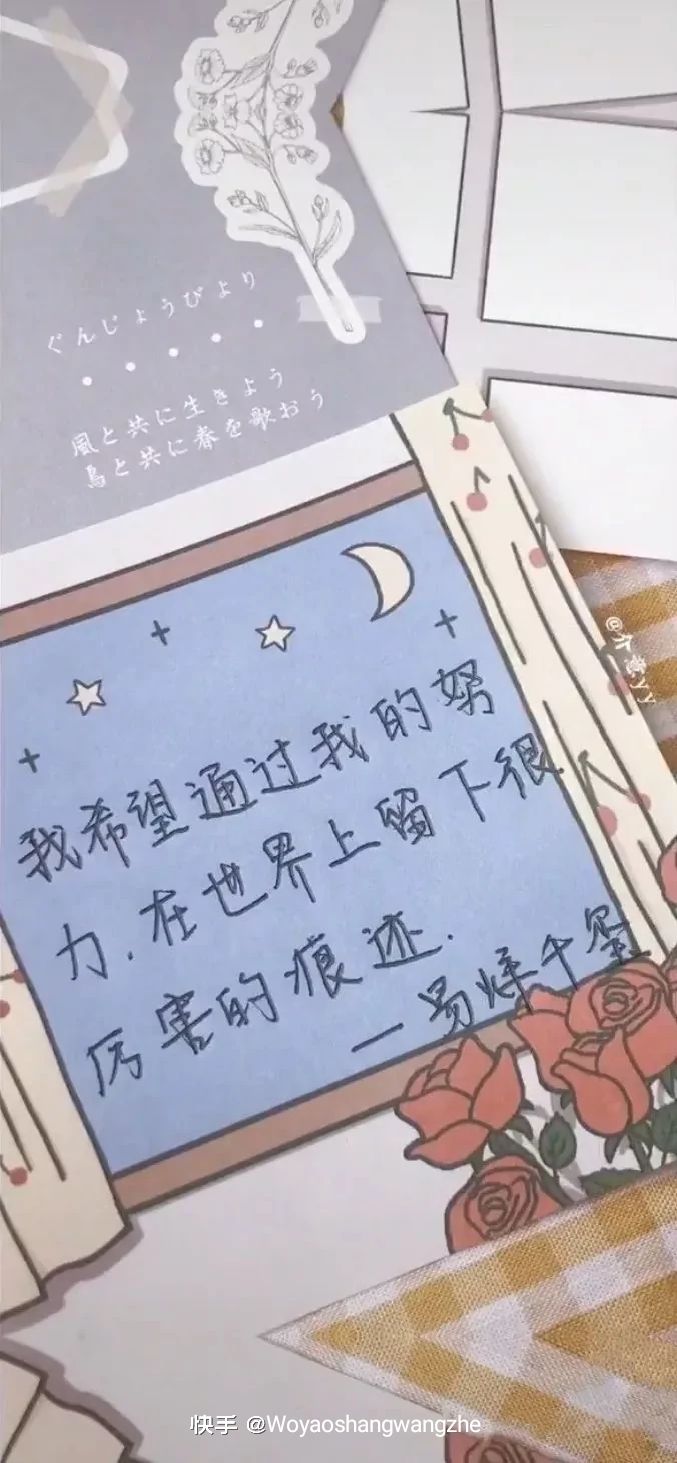 ぐんじょうびより
風と共に生きよう
鳥と共に春を歌おう
我希望通过我的努
力.在世界上留下很
厉害的痕迹.
—易烊千玺
快手 @Woyaoshangwangzhe